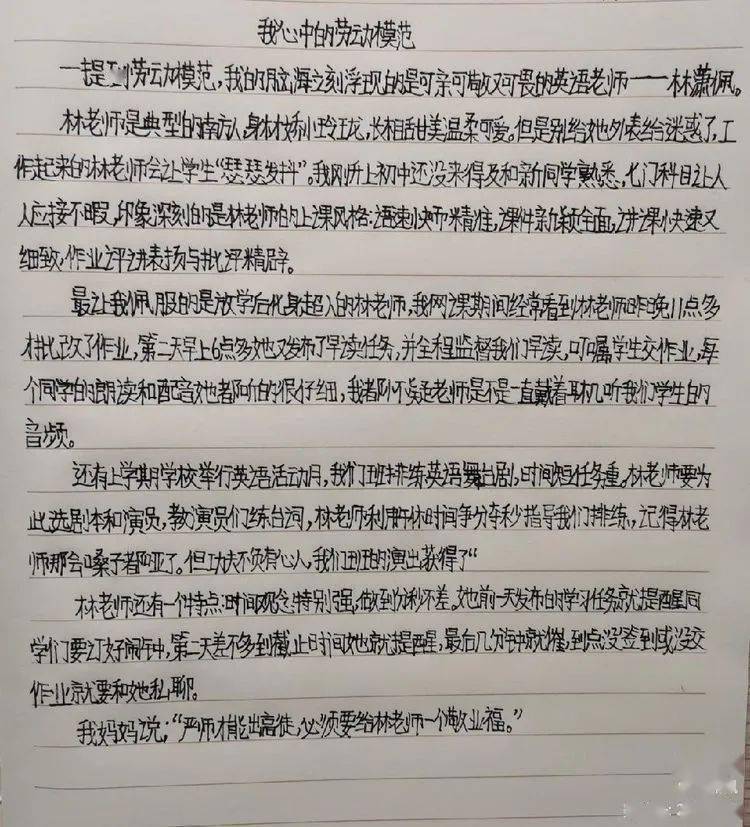 我心中的劳动模范
一提到劳动模范，我的脑海立刻浮现的是可亲可敬又可畏的英语老师——林潇佩。
林老师是典型的南方人身材娇小玲珑，长相甜美温柔可爱。但是别给她外表给迷惑了，工
作起来的林老师会让学生“瑟瑟发抖”。我刚升上初中还没来得及和新同学熟悉，七门科目让人
人应接不暇，印象深刻的是林老师的上课风格：语速快而精准，课件新颖全面，讲课快速又
细致，作业评讲表扬与批评精辟。
最让我佩服的是放学后化身超人的林老师，我网课期间经常看到林老师昨晚11点多
才批改了作业，第二天早上6点多她又发布了早读任务，并全程监督我们早读，叮嘱学生交作业，每
个同学的朗读和配音她都听的很仔细，我都怀疑老师是不是一直戴着耳机听我们学生的
音频。
还有上学期学校举行英语活动月，我们班排练英语舞台剧，时间短任务重。林老师要为
此选剧本和演员，教演员们练台词，林老师利用午休时间争分夺秒指导我们排练，记得林老
师那会嗓子都哑了。但功夫不负有心人，我们班的演出获得了“
林老师还有一个特点：时间观念特别强，做到分秒不差。她前一天发布的学习任务就提醒同
学们要订好闹钟，第二天差不多到截止时间她就提醒，最后几分钟就催，到点没签到或没交
作业就要和她私聊。
我妈妈说：“严师才能出高徒，必须要给林老师一个敬业福。”